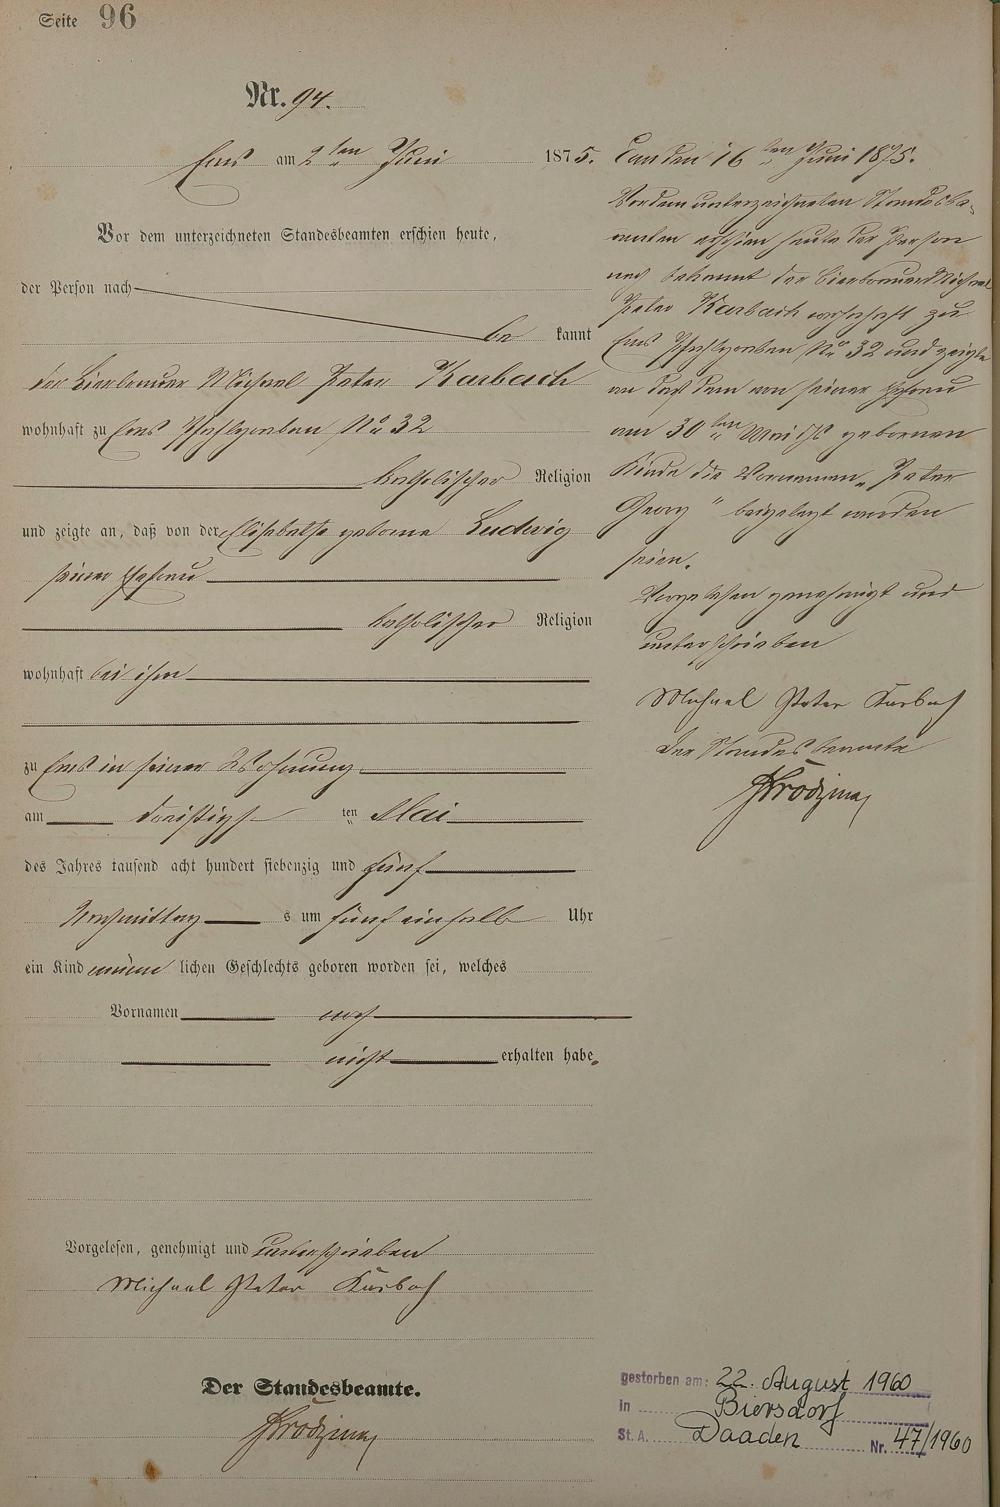 Seite 96
Nr. 94.
Ems am 2ten Juni 1875.
Vor dem unterzeichneten Standesbeamten erschien heute,
der Person nach
be kannt
der Bierbrauer Michael Peter Karbach
wohnhaft zu Ems Pfahlgraben No 32
katholischer Religion
und zeigte an, daß von der Elisabetha geborne Ludwig
seiner Ehefrau
katholischer Religion
wohnhaft bei ihm
zu Ems in seiner Wohnung
am dreißigsten Mai
des Jahres tausend acht hundert siebenzig und fünf
Nachmittags um fünf einhalb Uhr
ein Kind männlichen Geschlechts geboren worden sei, welches
Vornamen noch
nicht erhalten habe.
Vorgelesen, genehmigt und unterschrieben
Michael Peter Karbach
Der Standesbeamte.
Ems den 16ten Juni 1875.
Vor dem unterzeichneten Standesbe-
amten erschien heute der Person
nach bekannt der Bierbrauer Michael
Peter Karbach wohnhaft zu
Ems Pfahlgraben No 32 und zeigte
an daß dem von seiner Ehefrau
am 30ten Mai geborenen
Kinde die Vornamen „Peter
Georg" beigelegt worden
seien.
Vorgelesen genehmigt und
unterschrieben
Michael Peter Karbach
Der Standesbeamte
gestorben am: 22. August 1960
in Biersdorf
St.A. Daaden Nr. 47/1960